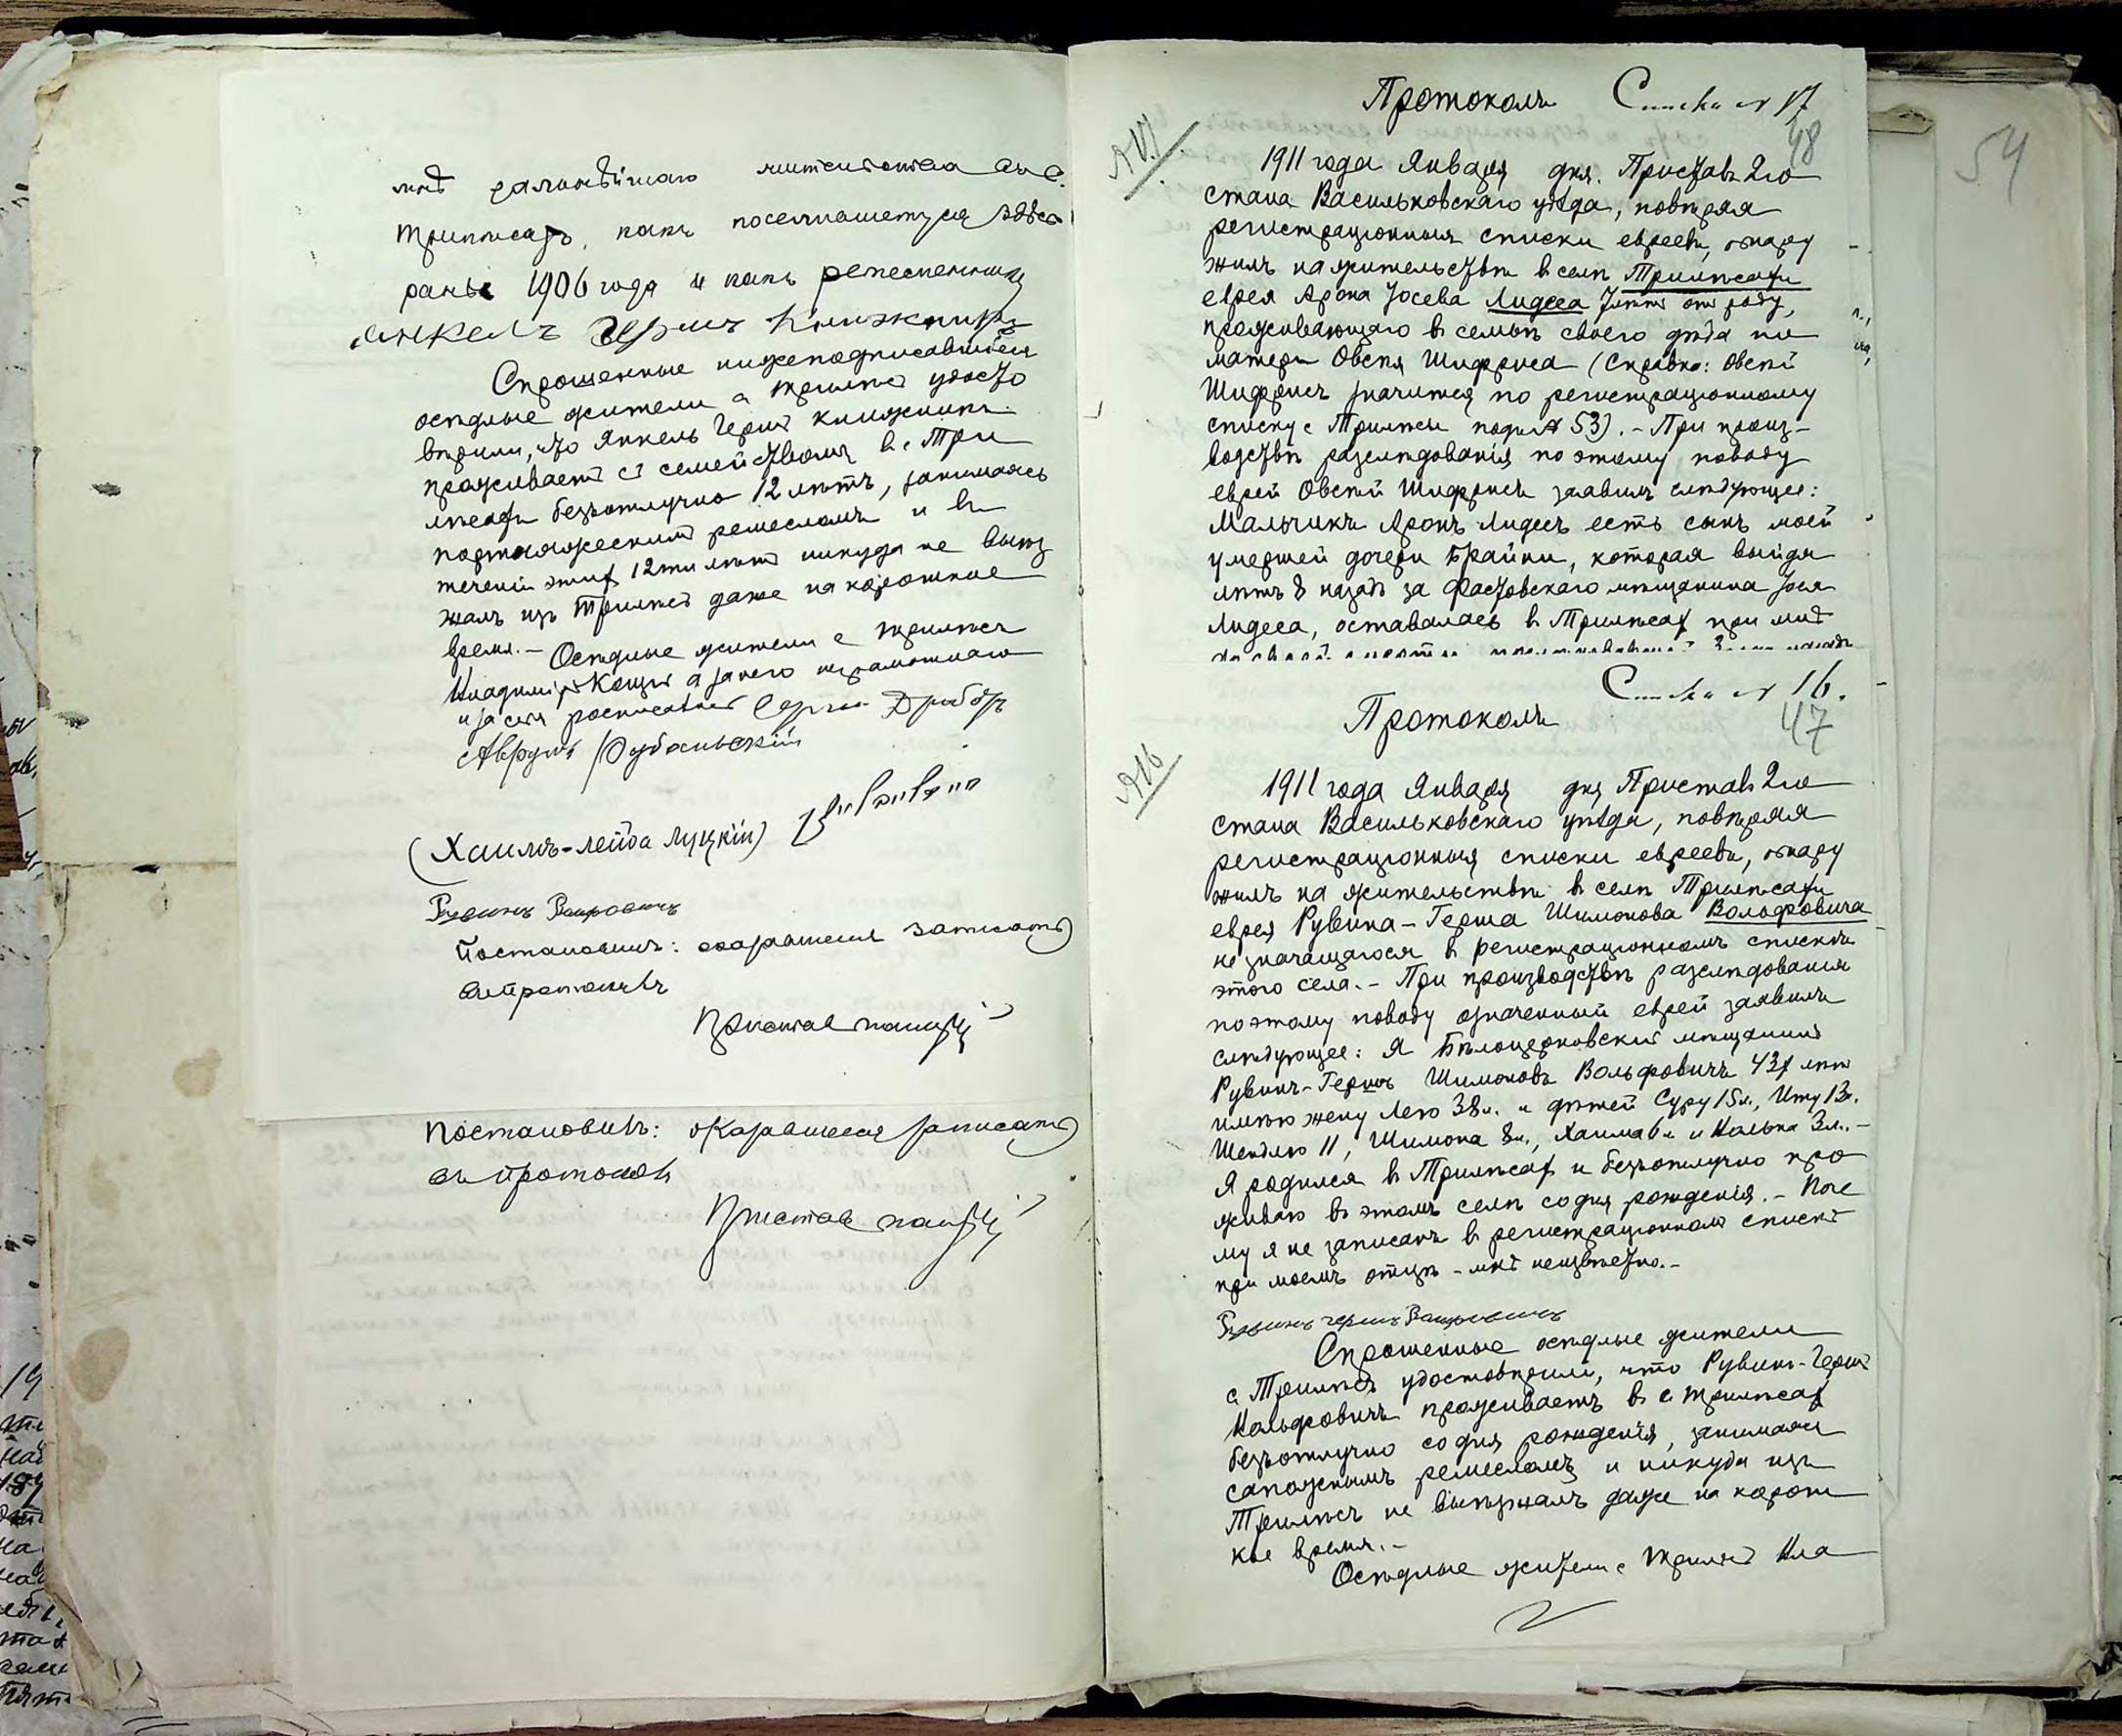 мнѣ дальнѣйшаго жительства въ с.
Трилѣсахъ, какъ поселившемуся здѣсь
раньѣ 1906 года и какъ ремесленнику
Янкель Герш Книжникъ
Спрошенные нижеподписавшіеся
осѣдлые жители с Трилѣсъ удосто
вѣрили, что Янкель Гершъ Книжникъ
проживаетъ съ семействомъ в с. Три
лѣсахъ безъотлучно 12 лѣтъ, занимаясь
портняжескимъ ремесломъ и въ
теченіи этихъ 12ти лѣтъ никуда не выѣз
жалъ изъ Трилѣсъ даже на короткое
время. – Осѣдлые жители с Трилѣсъ
Владиміръ Коцю а за него неграмотнаго
и за себя росписался Сергій Дрибор
Аврумъ
(Хаимъ-Лейба Луцкій)
Рувинъ Вольфовичъ
Постановилъ: оказавшееся записать
въ протоколъ
Приставъ
Постановилъ: оказавшееся записать
въ протоколъ
Приставъ
Протоколъ Списка № 17
48
№17
1911 года Января дня. Приставъ 2го
стана Васильковскаго уѣзда, повѣряя
регистраціонныя списки евреевъ, обнару
жилъ на жительствѣ в селѣ Трилѣсахъ
еврея Арона Іосева Лидеса 7 лѣтъ отъ роду,
проживающаго в семьѣ своего дѣда по
матери Овсѣя Шифриса (Справка: Овсѣй
Шифрисъ значится по регистраціонному
списку с Трилѣсы подъ № 53). – При произ-
водствѣ разслѣдованія по этому поводу
еврей Овсѣй Шифрисъ заявилъ слѣдующее:
Мальчикъ Аронъ Лидесъ есть сынъ моей
умершей дочери Брайны, которая выйдя
лѣтъ 8 назадъ за Фастовскаго мѣщанина Іося
Лидеса, оставалась в Трилѣсахъ при мнѣ
до своей смерти
Списка № 16.
Протоколъ
47
№16
1911 года Января дня Приставъ 2го
стана Васильковскаго уѣзда, повѣряя
регистраціонныя списки евреевъ, обнару
жилъ на жительствѣ в селѣ Трилѣсахъ
еврея Рувина-Герша Шимонова Вольфовича
не значащагося в регистраціонномъ спискѣ
этого села. – При производствѣ разслѣдованія
по этому поводу означенный еврей заявилъ
слѣдующее: Я Бѣлоцерковскій мѣщанинъ
Рувинъ-Гершъ Шимоновъ Вольфовичъ 43х лѣтъ
имѣю жену Лею 38л. и дѣтей Суру 15л., Иту 13л.
Шейдлю 11, Шимона 8л., Хаима 6л и Волька 3л. –
Я родился в Трилѣсахъ и безъотлучно про
живаю въ этомъ селѣ со дня рожденія. – Поче
му я не записанъ в регистраціонномъ спискѣ
при моемъ отцѣ – мнѣ неизвѣстно. –
Рувинъ Гершъ Вольфовичъ
Спрошенные осѣдлые жители
с Трилѣсъ удостовѣрили, что Рувинъ-Гершъ
Вольфовичъ проживаетъ в с Трилѣсахъ
безъотлучно со дня рожденія, занимаясь
сапожнымъ ремесломъ и никуда изъ
Трилѣсъ не выѣзжалъ даже на корот
кое время. –
Осѣдлые жители с Трилѣсъ Вла
54